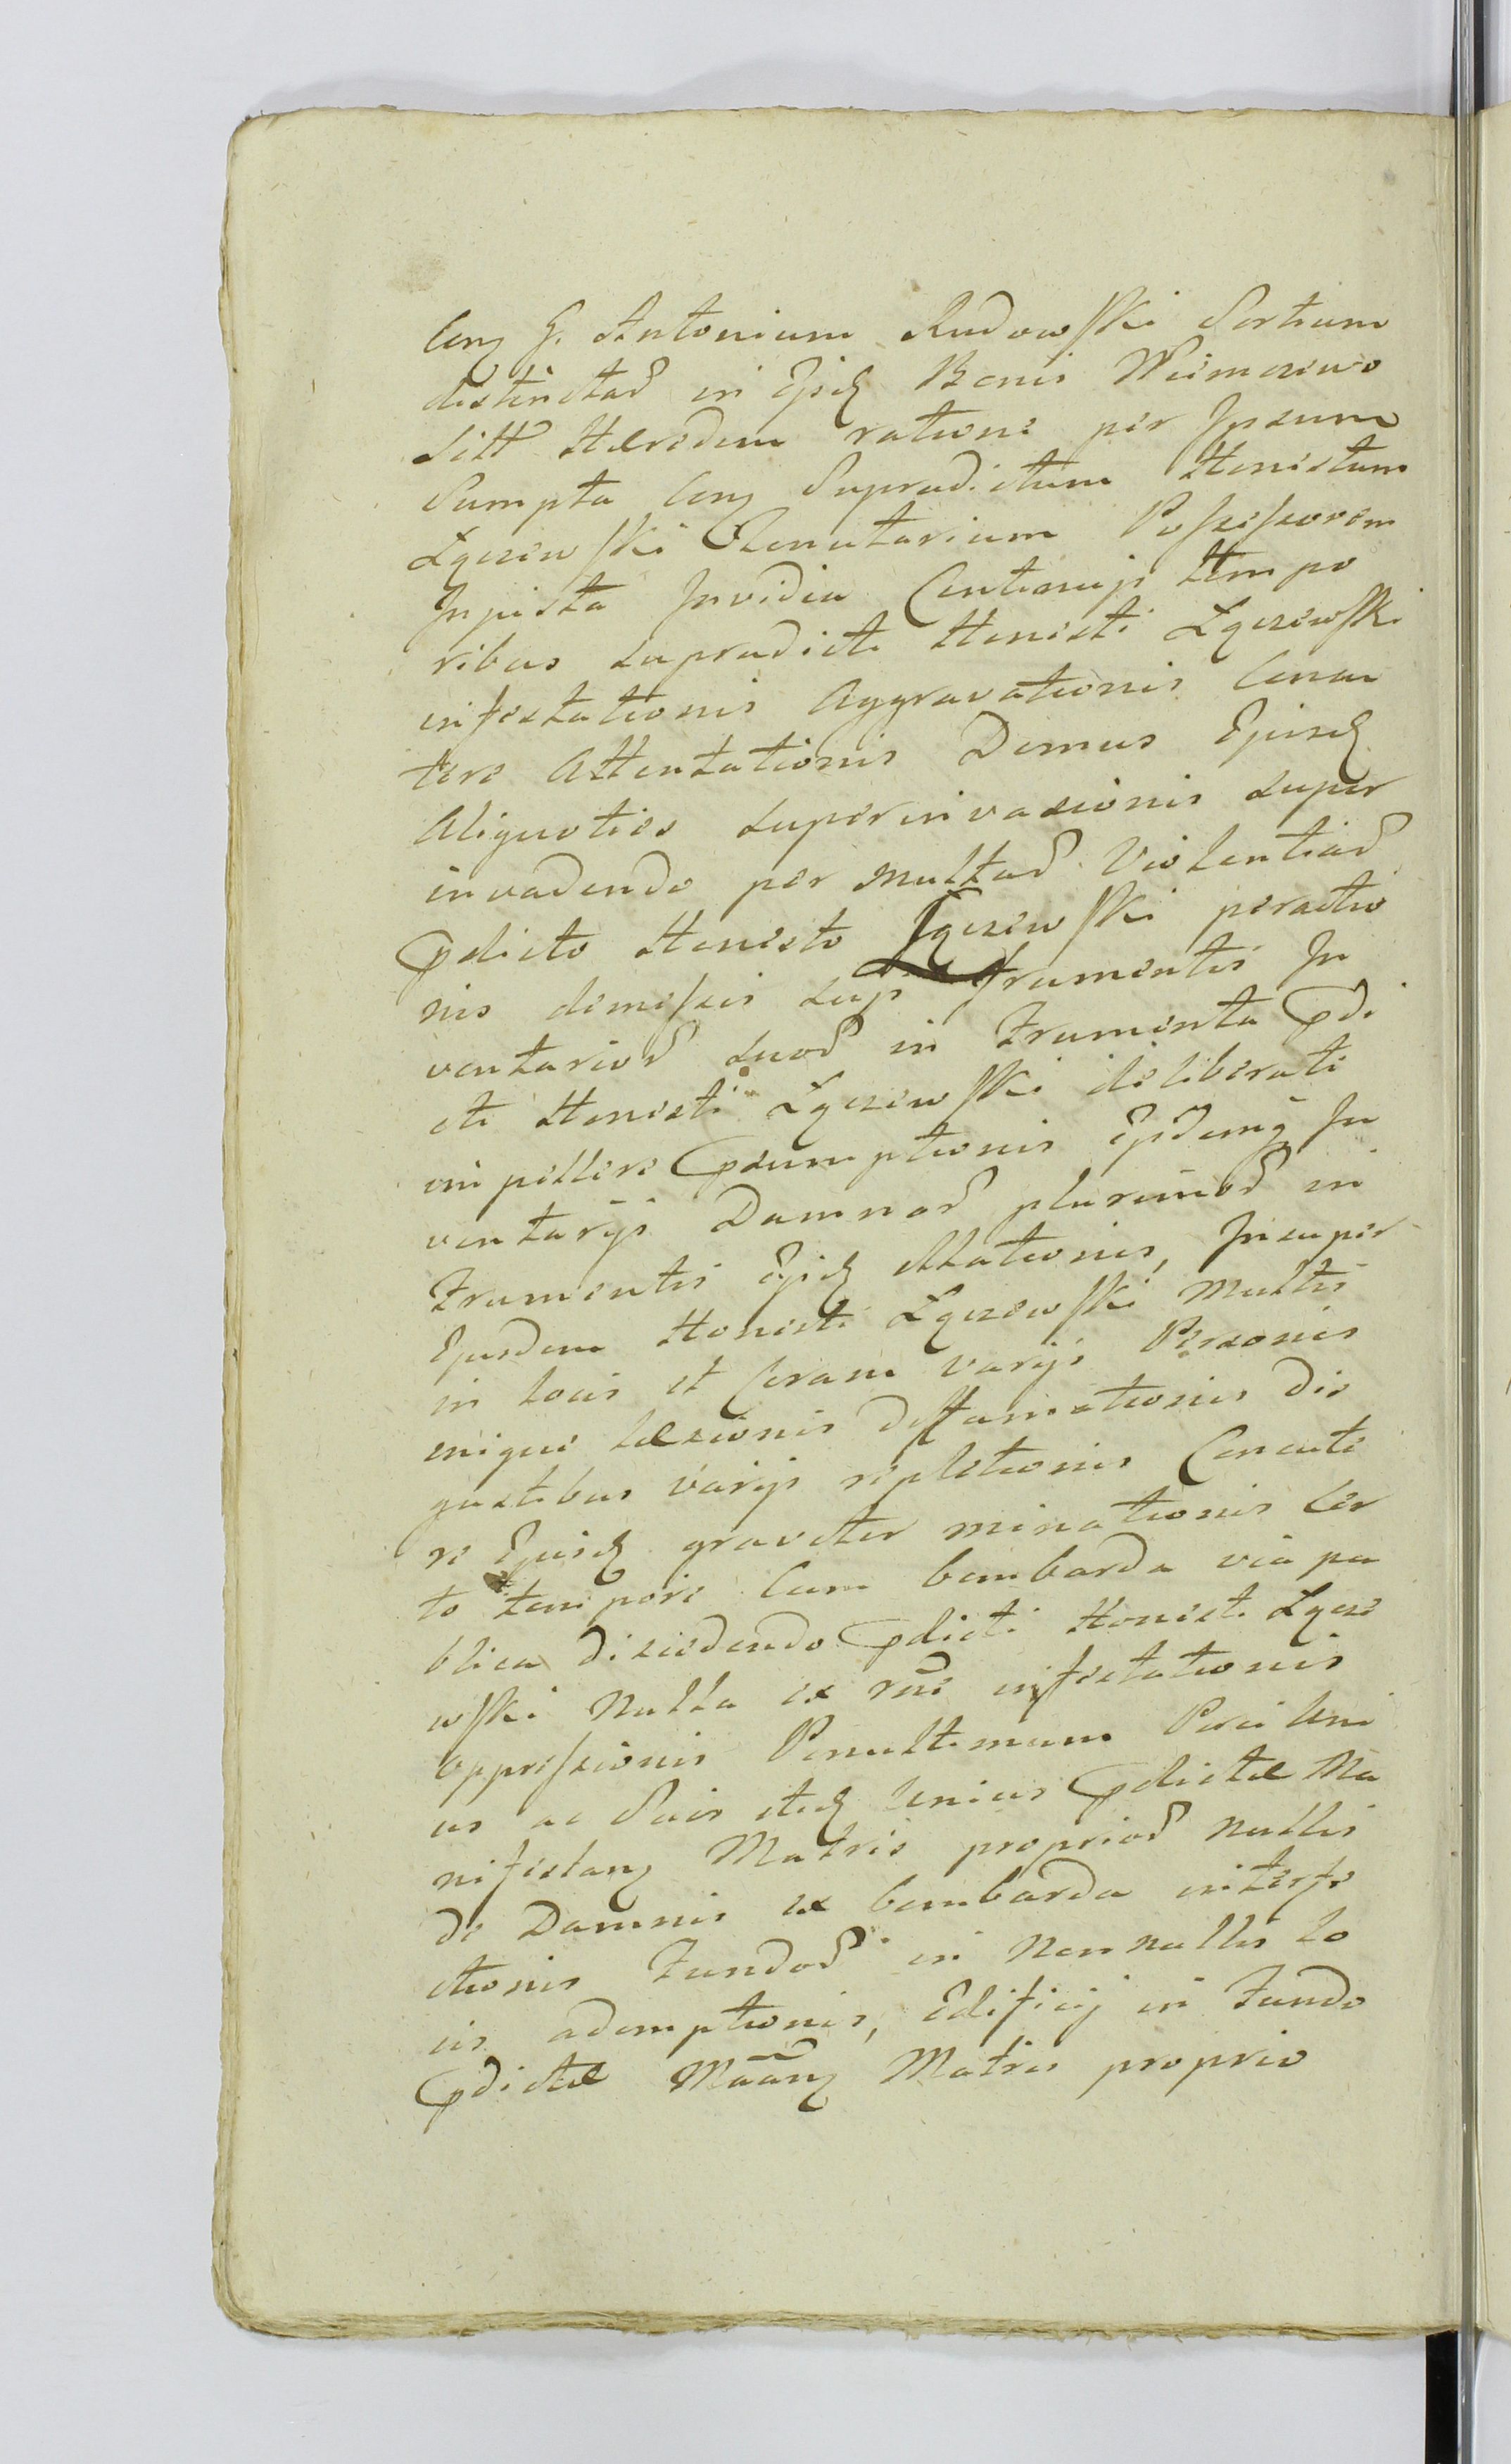 Conq G. Antonium Rudowski Sortium
distinctar in Ejsq Bonis Niemczewo
sitt Hæredem ratione per Ipsum
Sumpta Conq Supradictum Honestum
Łączewski Plenutarium Possessorem
Injusta Invidia Continuis tempo
ribus supradicti Honesti Łączewski
infestationis Aggravationis Conan
ter Attentationis Domus Ejusq
Aliquoties superinvasionis super
invadendo per multas Violentias
pdicto Honesto Łączewski peractio
nis demissis suis frumentis In
ventarior suor in Frumenta pdi
cti Honesti Łączewski deliberati
impellere psumptionis Ejsdemq In
ventarijs Damnor plurimor in
Frumentis Ejsq illationis, Insuper
Ejusdem Honesti Łączewski Multis
in locis et Coram varijs Personis
inique læsionis diffamationis dis
gustibus varijs repletionis Concuti
re Ejusq graviter minationis Cer
to tempore Cum bombarda via pu
blica discedendo pdicti Honesti Łącze
wski Nulla ex rne infestationis
oppressionis Penultimum Porci Uni
us ac Suis itq Unius pdictæ Ma
nifestanq Matris proprior nullis
de Damnis ex bombarda interfe
ctionis Fundor in Nonnullis lo
cis ademptionis, Edificij in Fundo
pdictæ Māānq Matris proprio